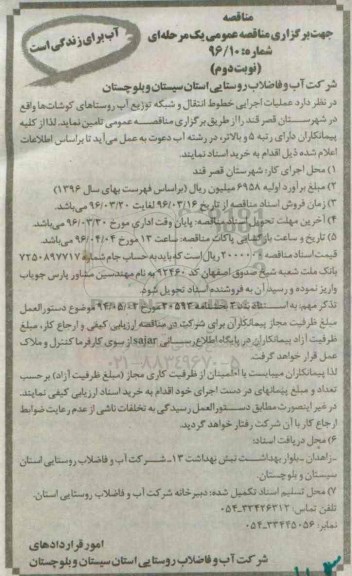 مناقصه
آب برای زندگی است
جهت برگزاری مناقصه عمومی یک مرحله‌ای
شماره: ۹۶/۱۰
(نوبت دوم)
شرکت آب و فاضلاب روستایی استان سیستان و بلوچستان
در نظر دارد عملیات اجرایی خطوط انتقال و شبکه توزیع آب روستاهای کوشات‌ها واقع
در شهرستان قصر قند را از طریق برگزاری مناقصه عمومی تامین نماید. لذا از کلیه
پیمانکاران دارای رتبه ۵ و بالاتر، در رشته آب دعوت به عمل می‌آید تا براساس اطلاعات
اعلام شده ذیل اقدام به خرید اسناد نمایند.
۱) محل اجرای کار: شهرستان قصر قند
۲) مبلغ برآورد اولیه ۶۹۵۸ میلیون ریال (براساس فهرست بهای سال ۱۳۹۶)
۳) زمان فروش اسناد مناقصه: از تاریخ ۹۶/۰۳/۱۶ لغایت ۹۶/۰۳/۲۰ می‌باشد.
۴) آخرین مهلت تحویل اسناد مناقصه: پایان وقت اداری مورخ ۹۶/۰۳/۳۰ می‌باشد.
۵) تاریخ و ساعت بازگشایی پاکات مناقصه: ساعت ۱۳ مورخ ۹۶/۰۴/۰۴ می‌باشد.
قیمت اسناد مناقصه ۲۰۰۰۰۰۰ ریال است که باید به حساب جام شماره ۷۲۵۰۸۹۷۷۱۷
بانک ملت شعبه شیخ صدوق اصفهان کد ۹۲۴۶۰ به نام مهندسین مشاور پارس جویاب
واریز نموده و رسید آن به فروشنده اسناد تحویل شود.
تذکر مهم: به استناد بند ۳ بخشنامه ۲۰۵۹۳ مورخ ۹۴/۰۵/۰۳ موضوع دستورالعمل
مبلغ ظرفیت مجاز پیمانکاران برای شرکت در مناقصه ارزیابی کیفی و ارجاع کار، مبلغ
ظرفیت آزاد پیمانکاران در پایگاه اطلاع رسانی sajar از سوی کارفرما کنترل و ملاک
عمل قرار خواهد گرفت.
لذا پیمانکاران میبایست با اطمینان از ظرفیت کاری مجاز (مبلغ ظرفیت آزاد) بر حسب
تعداد و مبلغ پیمانهای در دست اجرای خود اقدام به خرید اسناد ارزیابی کیفی نمایند.
در غیر اینصورت مطابق دستورالعمل رسیدگی به تخلفات ناشی از عدم رعایت ضوابط
ارجاع کار با آن شرکت رفتار خواهد گردید.
۶) محل دریافت اسناد:
_زاهدان_بلوار بهداشت نبش بهداشت ۱۳_شرکت آب و فاضلاب روستایی استان
سیستان و بلوچستان.
۷) محل تسلیم اسناد تکمیل شده: دبیرخانه شرکت آب و فاضلاب روستایی استان.
تلفن تماس: ۳۳۴۲۶۳۱۲_۰۵۴
نمابر: ۳۳۴۴۵۰۵۶_۰۵۴
امور قراردادهای
شرکت آب و فاضلاب روستایی استان سیستان و بلوچستان